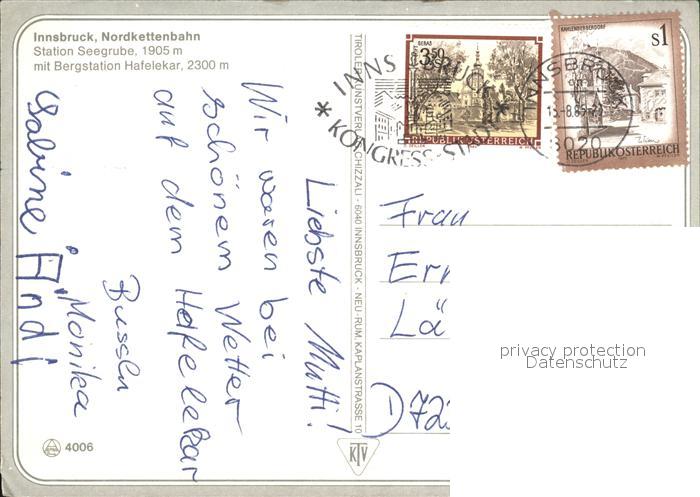 Innsbruck, Nordkettenbahn
Station Seegrube, 1905 m
mit Bergstation Hafelekar, 2300 m
Liebste Mutti!
Wir waren bei
schönem Wetter
auf dem Hafelekar
Bussln
Monika
Sabine Andi
4006
TIROLER KUNSTVERLAG CHIZZALI - 6040 INNSBRUCK - NEU-RUM, KAPLANSTRASSE 10
KTV
GERAS
3.50
REPUBLIK ÖSTERREICH
KAHLENBERGERDORF
s1
REPUBLIK ÖSTERREICH
INNSBRUCK
* KONGRESS-STADT *
INNSBRUCK
6020
Frau
Er
Lä
D 72
privacy protection
Datenschutz